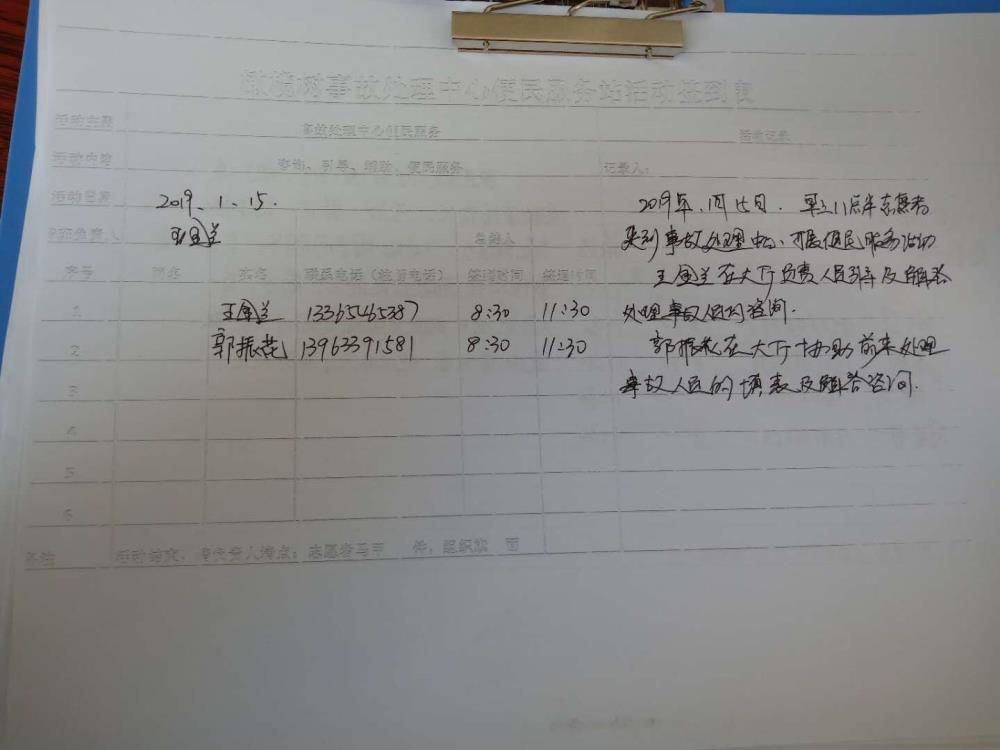 橄榄树事故处理中心便民服务站活动签到表
活动主题 事故处理中心便民服务 活动记录
活动内容 咨询、引导、帮助、便民服务 记录人:
活动日期 2019.1.15. 2019年.1月15日.
负责人 王金兰 来到事故处理中心.开展便民服务活动
序号 实名 联系电话 签到时间 签退时间 王金兰在大厅负责人员引导及解答
1 王金兰 13365465387 8:30 11:30 处理事故人员的咨询.
2 郭振花 13963391581 8:30 11:30 郭振花在大厅协助前来处理
3 事故人员的填表及解答咨询.
4
5
6
备注 活动结束,